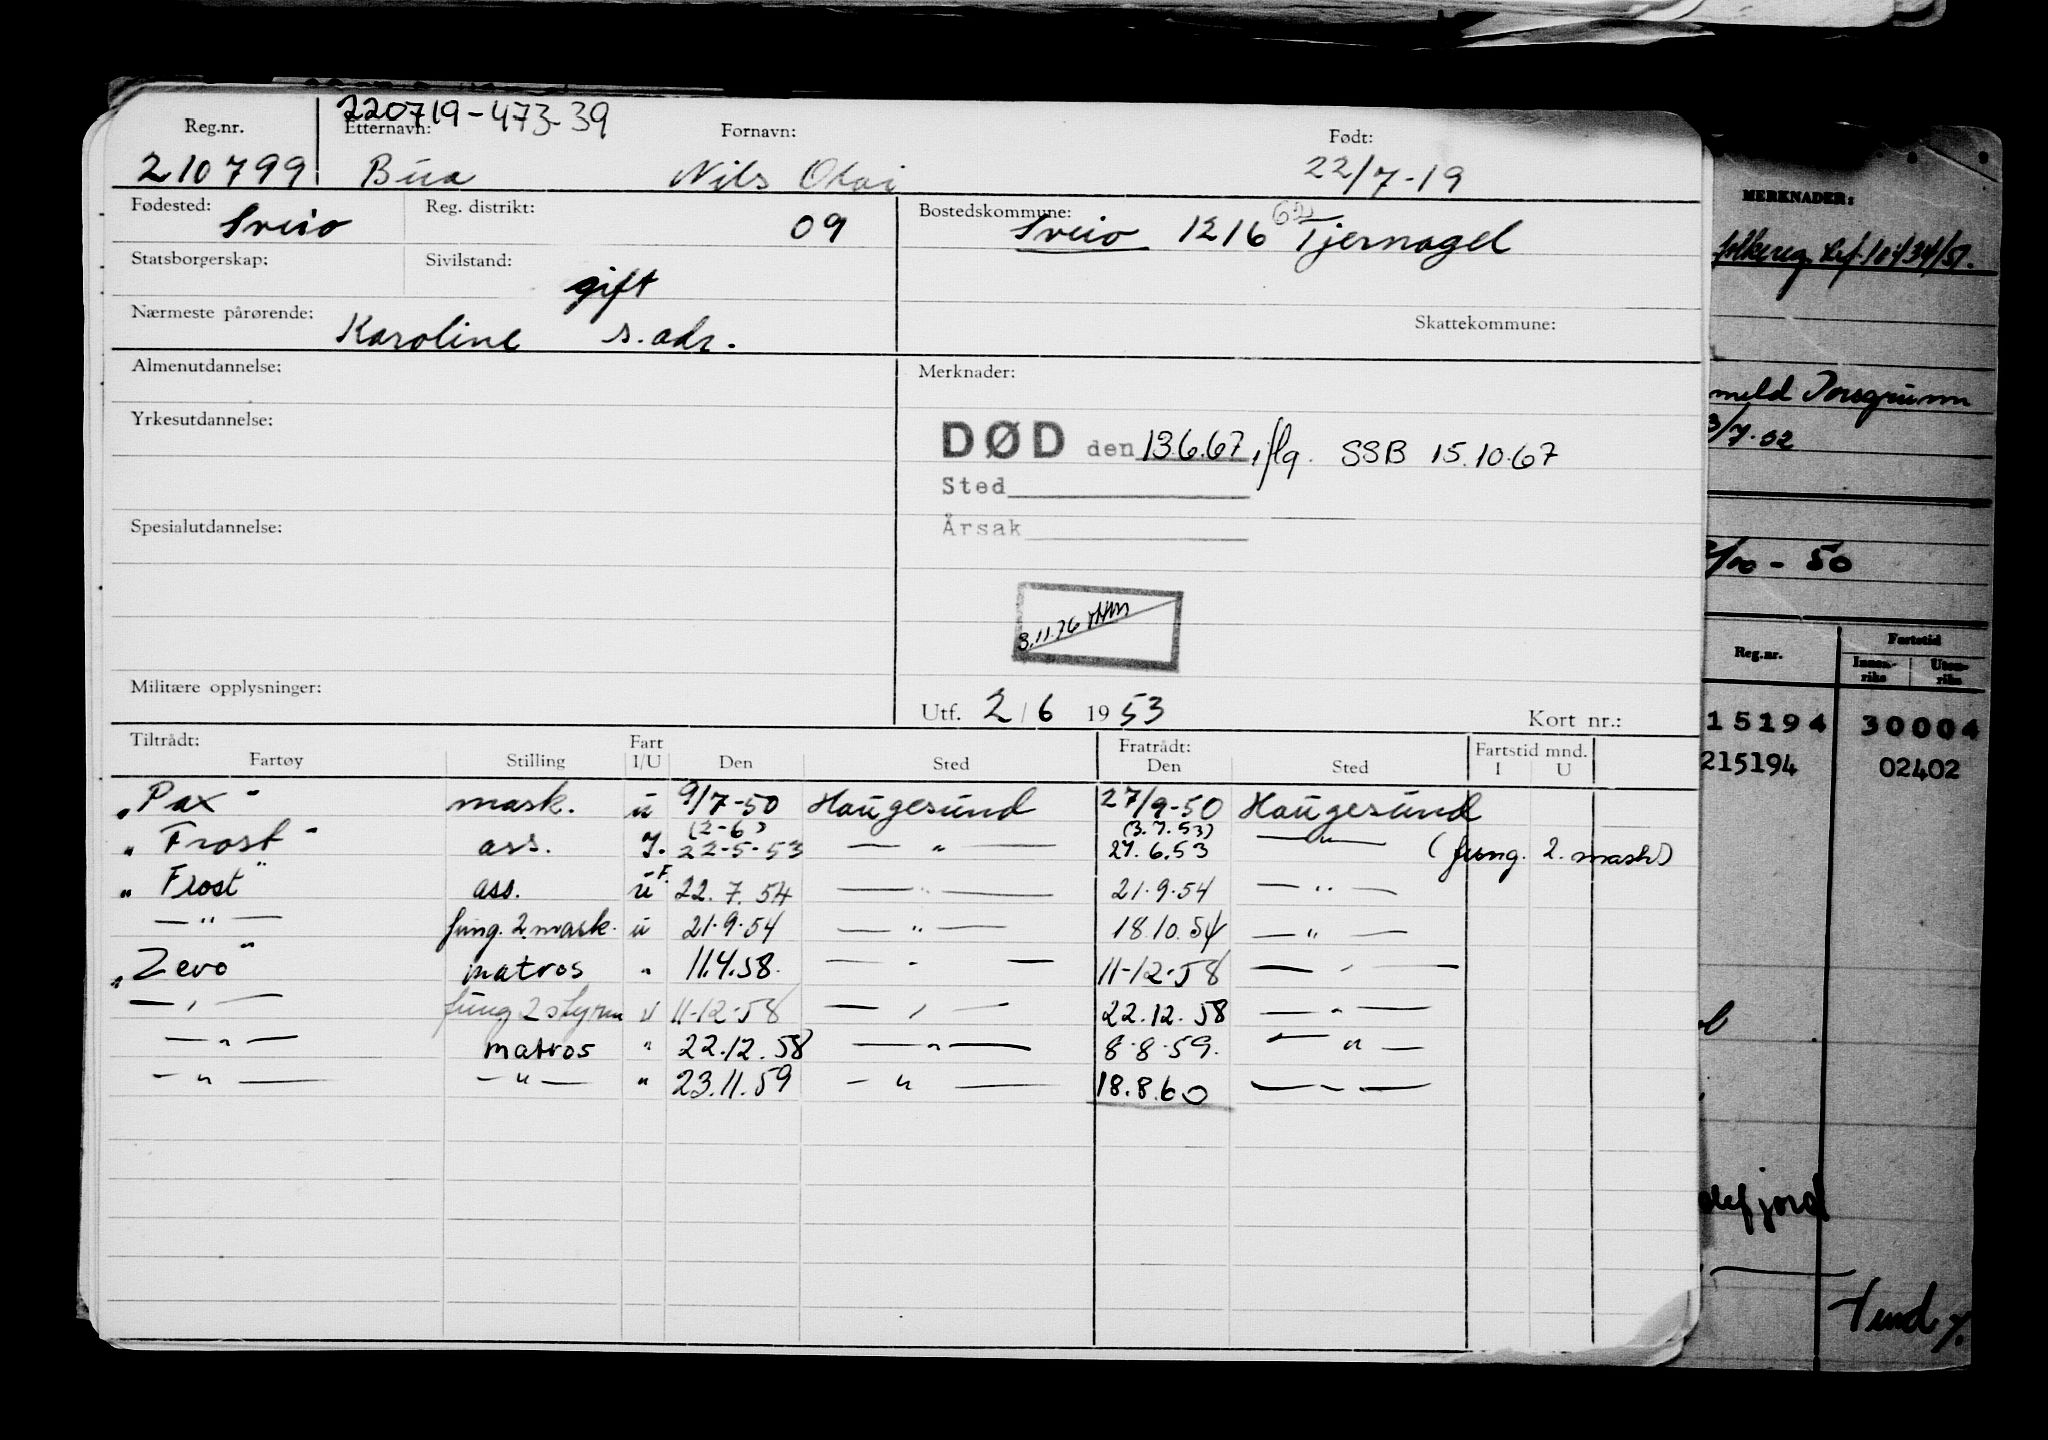 220719-473-39
Reg.nr. Etternavn: Fornavn: Født:
210799 Bua Nils Olai 22/7-19
Fødested: Sveio Reg. distrikt: 09 Bostedskommune: Sveio 1216 62 Tjernagel
Statsborgerskap: Sivilstand: gift
Nærmeste pårørende: Karoline s. adr. Skattekommune:
Almenutdannelse: Merknader:
Yrkesutdannelse:
DØD den 13.6.67, iflg. SSB 15.10.67
Sted
Spesialutdannelse: Årsak
3.11.76
Militære opplysninger: Utf. 2/6 1953 Kort nr.:
Tiltrådt: Fratrådt: Fartstid mnd.
Fartøy Stilling Fart I/U Den Sted Den Sted I U
"Pax" mask. u 9/7-50 Haugesund 27/9-50 Haugesund
(2-6) (3.7.53)
"Frost" ass. I. 22-5-53 — " — 27.6.53 — " — (fung. 2. mask)
"Frost" ass. u F. 22.7.54 — " — 21.9.54 — " —
— " — fung. 2. mask. u 21.9.54 — " — 18.10.54 — " —
"Zevo" matros " 11.4.58. — " — 11-12-58 — " —
— " — fung 2 styrm u 11-12-58 — " — 22.12.58 — " —
— " — matros " 22.12.58 — " — 8.8.59. — " —
— " — — " — " 23.11.59 — " — 18.8.60 — " —
MERKNADER:
folkereg.
meld Porsgrunn
3/7.52
/10-50
Reg.nr. Fartstid
Innen-riks Uten-riks
15194 30004
215194 02402
efjord